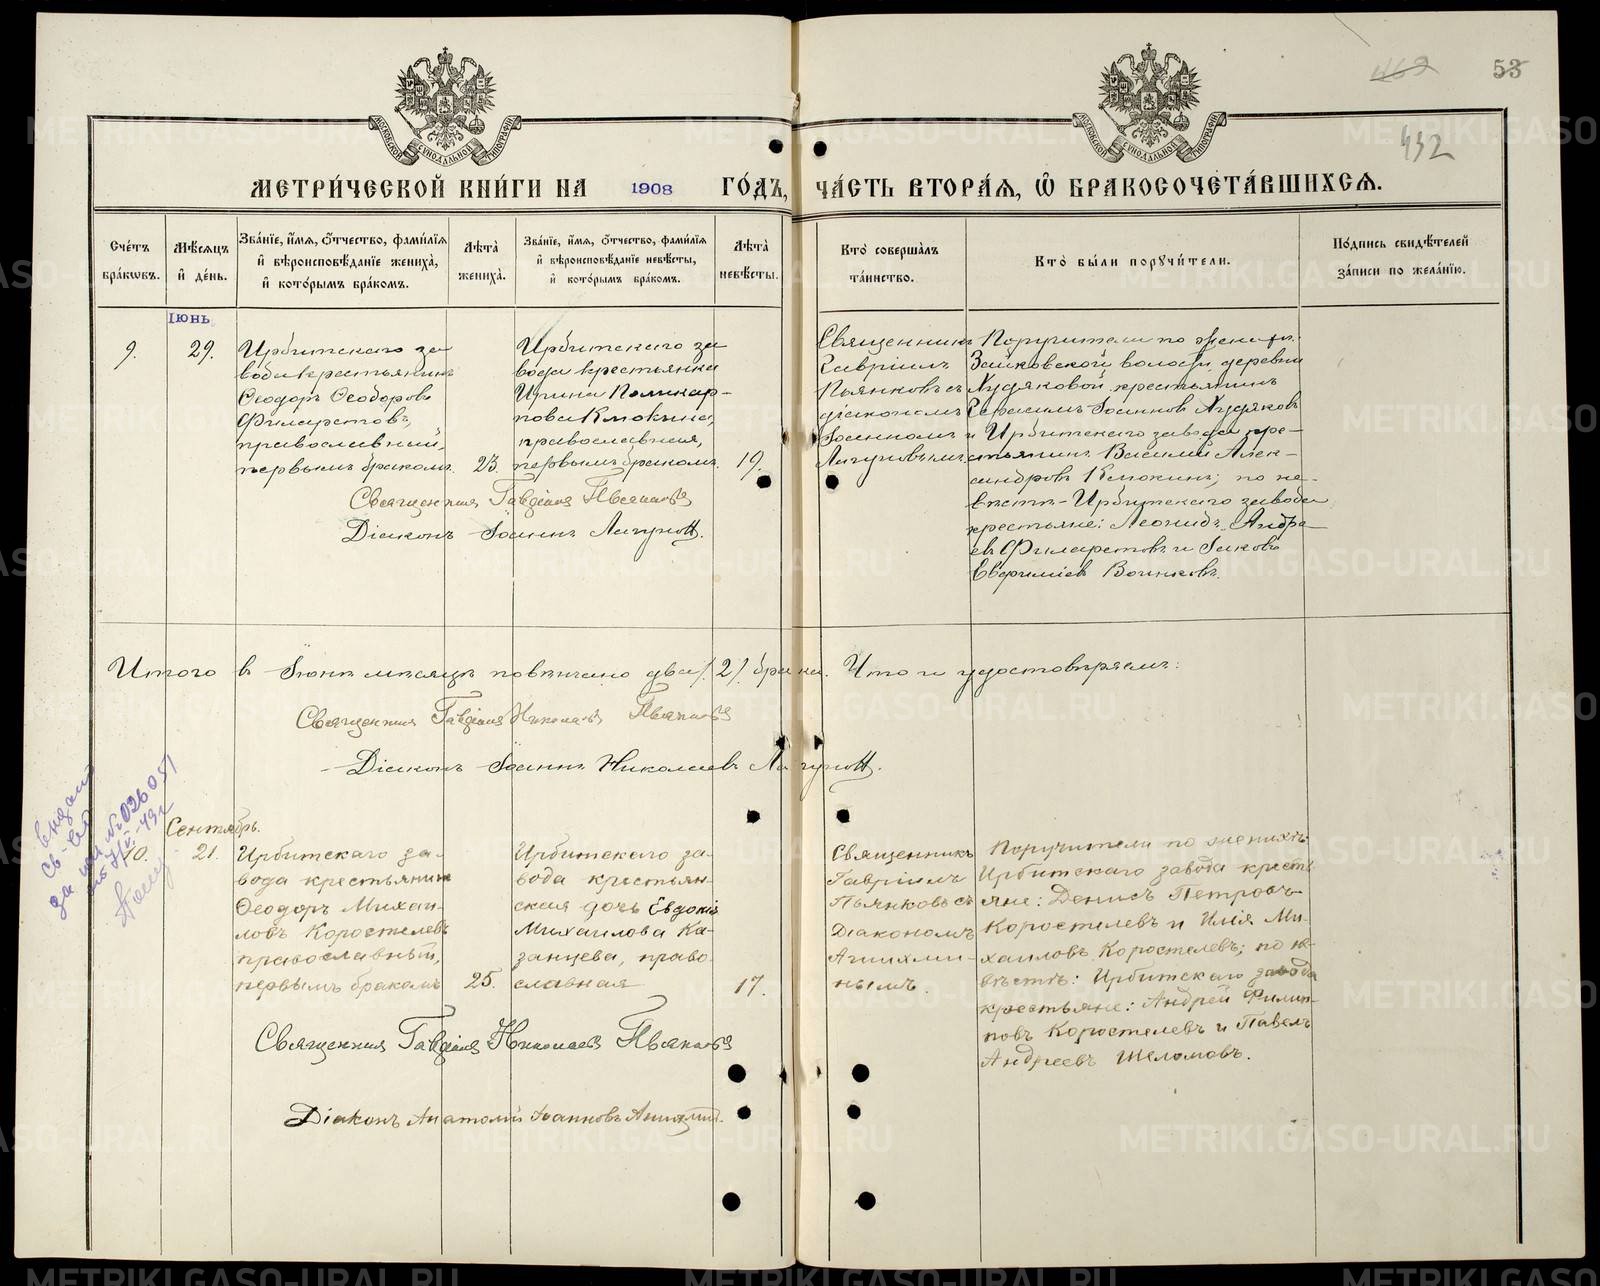 462
53
432
МОСКОВСКОЙ СѴНОДАЛЬНОЙ ТИПОГРАФІИ
МОСКОВСКОЙ СѴНОДАЛЬНОЙ ТИПОГРАФІИ
МЕТРИ́ЧЕСКОЙ КНИ́ГИ НА 1908 ГО́ДЪ, ЧА́СТЬ ВТОРА́Я, Ѡ БРАКОСОЧЕТА́ВШИХСЯ.
Сче́тъ бра́ковъ.
Мѣ́сяцъ и҆ де́нь.
Зва́нїе, и҆́мя, ѻ҆́тчество, фами́лїя и҆ вѣроисповѣ́данїе жениха̀, и҆ кото́рымъ бра́комъ.
Лѣ́та жениха̀.
Зва́нїе, и҆́мя, ѻ҆́тчество, фами́лїя и҆ вѣроисповѣ́данїе невѣ́сты, и҆ кото́рымъ бра́комъ.
Лѣ́та невѣ́сты.
Кто̀ соверша́лъ та́инство.
Кто̀ бы́ли поручи́тели.
По́дпись свидѣ́телей за́писи по жела́нїю.
Іюнь
9.
29.
Ирбитскаго за
вода крестьянинъ
Ѳеодоръ Ѳеодоровъ
Филаретовъ,
православный,
первымъ бракомъ.
23.
Ирбитскаго за
вода крестьянка
Ирина Поликар-
пова Клюкина,
православная,
первымъ бракомъ.
19.
Священникъ
Гавріилъ
Пьянковъ съ
діакономъ
Іоанномъ
Лагуновымъ.
Поручители по жених.:
Зайковской волости, деревни
Худяковой крестьянинъ
Герасимъ Іоанновъ Худяковъ
и Ирбитскаго завода кре-
стьянинъ Василій Алек-
сандровъ Клюкинъ; по не-
вѣстѣ - Ирбитскаго завода
крестьяне: Леонидъ Андре-
евъ Филаретовъ и Іаковъ
Евфиміевъ Воинковъ.
Священникъ Гавріилъ Пьянковъ
Діаконъ Іоаннъ Лагуновъ.
Итого въ Іюнѣ мѣсяцѣ повѣнчано два /2/ брака. Что и удостовѣряемъ:
Священникъ Гавріилъ Николаевъ Пьянковъ
Діаконъ Іоаннъ Николаевъ Лагуновъ.
Выдано
св-во
за № 026051
Сентябрь.
10.
21.
Ирбитскаго за-
вода крестьянинъ
Ѳеодоръ Михаи-
ловъ Коростелевъ
православный,
первымъ бракомъ
25.
Ирбитскаго за-
вода крестьян-
ская дочь Евдокія
Михаилова Ка-
занцева, право-
славная
17.
Священникъ
Гавріилъ
Пьянковъ съ
Діакономъ
Ашихми-
нымъ.
Поручители по женихѣ
Ирбитскаго завода кресть
яне: Денисъ Петровъ
Коростелевъ и Илія Ми-
хаиловъ Коростелевъ; по не-
вѣстѣ: Ирбитскаго завода
крестьяне: Андрей Филип-
повъ Коростелевъ и Павелъ
Андреевъ Шеломовъ.
Священникъ Гавріилъ Николаевъ Пьянковъ
Діаконъ Анатолій Іоанновъ Ашихминъ.
METRIKI.GASO-URAL.RU